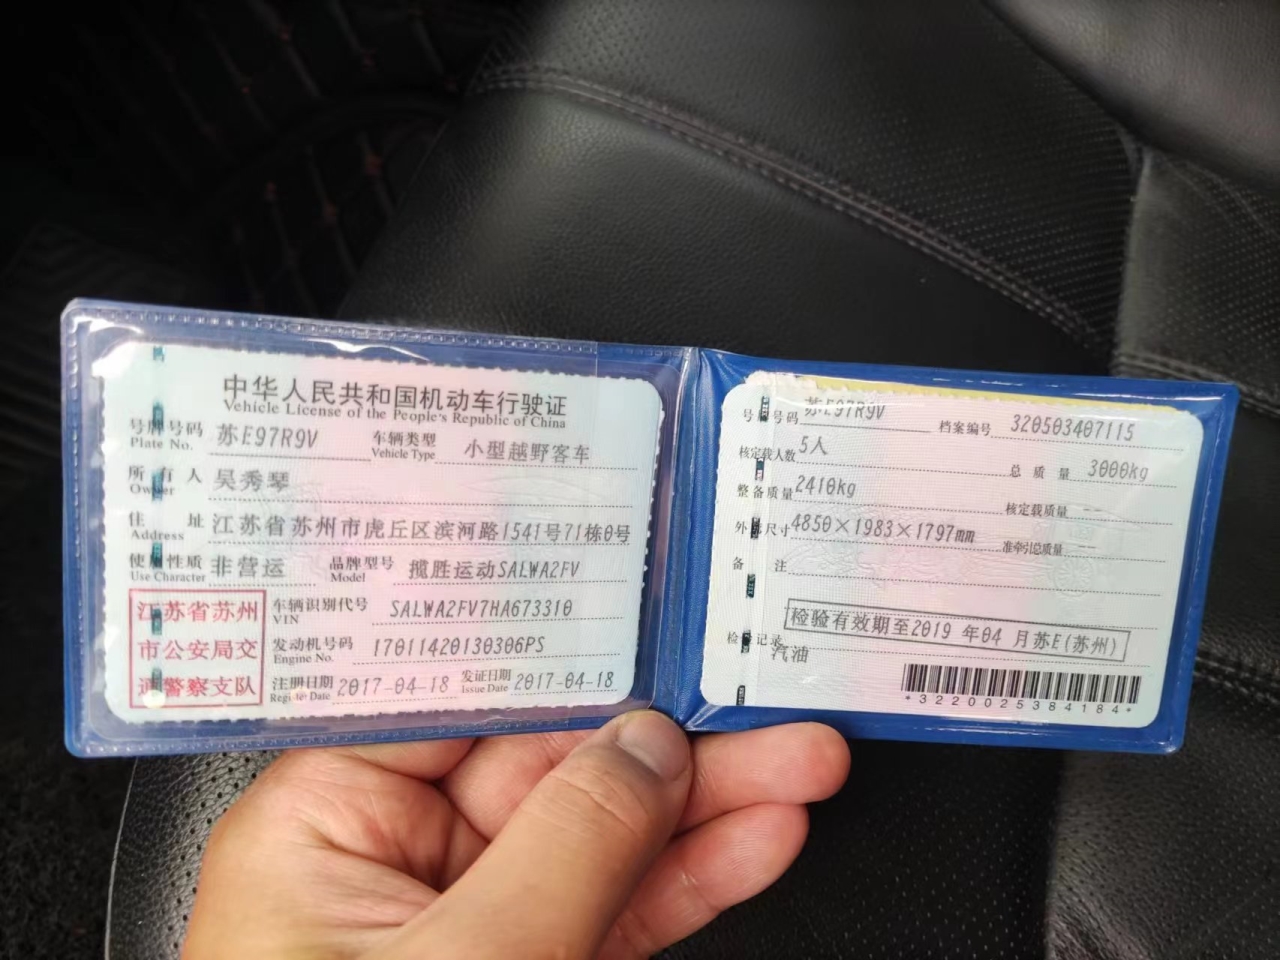 中华人民共和国机动车行驶证
Vehicle License of the People's Republic of China
号牌号码 苏E97R9V 车辆类型 小型越野客车
Plate No. Vehicle Type
所有人 吴秀琴
Owner
住址 江苏省苏州市虎丘区滨河路1541号71栋0号
Address
使用性质 非营运 品牌型号 揽胜运动SALWA2FV
Use Character Model
江苏省苏州
市公安局交
通警察支队
车辆识别代号 SALWA2FV7HA673310
VIN
发动机号码 17011420130306PS
Engine No.
注册日期 2017-04-18 发证日期 2017-04-18
Register Date Issue Date
号牌号码 苏E97R9V 档案编号 320503407115
核定载人数 5人 总质量 3000kg
整备质量 2410kg 核定载质量 --
外廓尺寸 4850×1983×1797mm 准牵引总质量 --
备注
检验有效期至2019年04月苏E(苏州)
检验记录
汽油
*3220025384184*